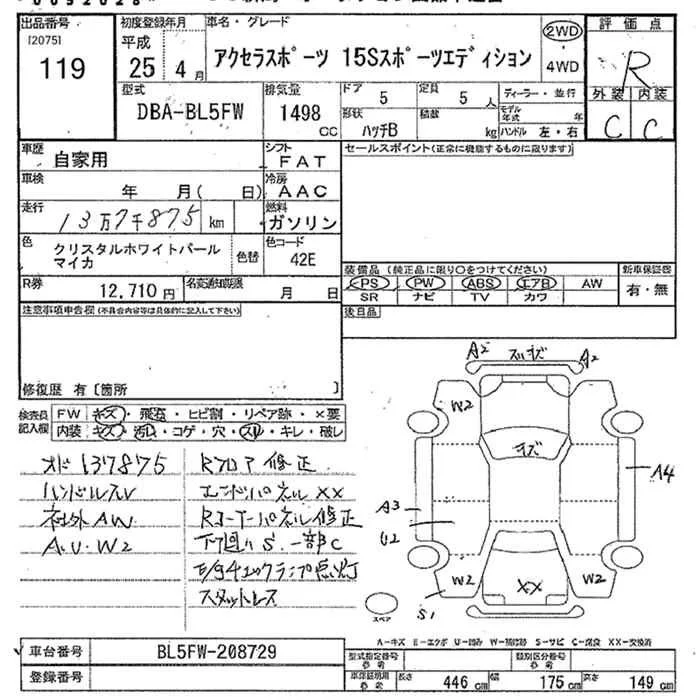 出品番号
[2075]
119
初度登録年月
平成
25 4 月
車名・グレード
アクセラスポーツ 15Sスポーツエディション
2WD
・
4WD
評価点
R
外装 内装
C C
型式
DBA-BL5FW
排気量
1498
CC
ドア
5
定員
5 人
ディーラー・並行
形状
ハッチB
積数
kg
モデル年式 年
ハンドル 左・右
車歴
自家用
シフト
FAT
セールスポイント(正常に機能するものに限ります)
車検
年 月( 日)
冷房
AAC
走行
13万7千875 km
燃料
ガソリン
色
クリスタルホワイトパール
マイカ
色替
色コード
42E
装備品(純正品に限り○をつけてください)
新車保証書
PS PW ABS エアB AW
SR ナビ TV カワ
有・無
R券
12,710 円
名変通知期限
月 日
注意事項申告欄(不具合内容等は具体的に記入して下さい)
後日品
修復歴 有〔箇所 〕
検査員
記入欄
FW キズ・飛石・ヒビ割・リペア跡・×要
内装 キズ・汚れ・コゲ・穴・スレ・キレ・破レ
オド137875
ハンドルスレ
社外AW
A.U.W2
Rフロア修正
エンドパネルXX
Rコーナーパネル修正
下回りS.一部C
E/gチェックランプ点灯
スタットレス
A2 スリキズ A2
W2
キズ
A4
A3
U2
W2 XX W2
S1
スペア
A-キズ E-エクボ U-凹み W-補修跡 S-サビ C-腐食 XX-交換済
車台番号
BL5FW-208729
登録番号
型式指定番号
参考
類別区分番号
参考
車庫証明用
参考
長さ 446 cm 幅 175 cm 高さ 149 cm